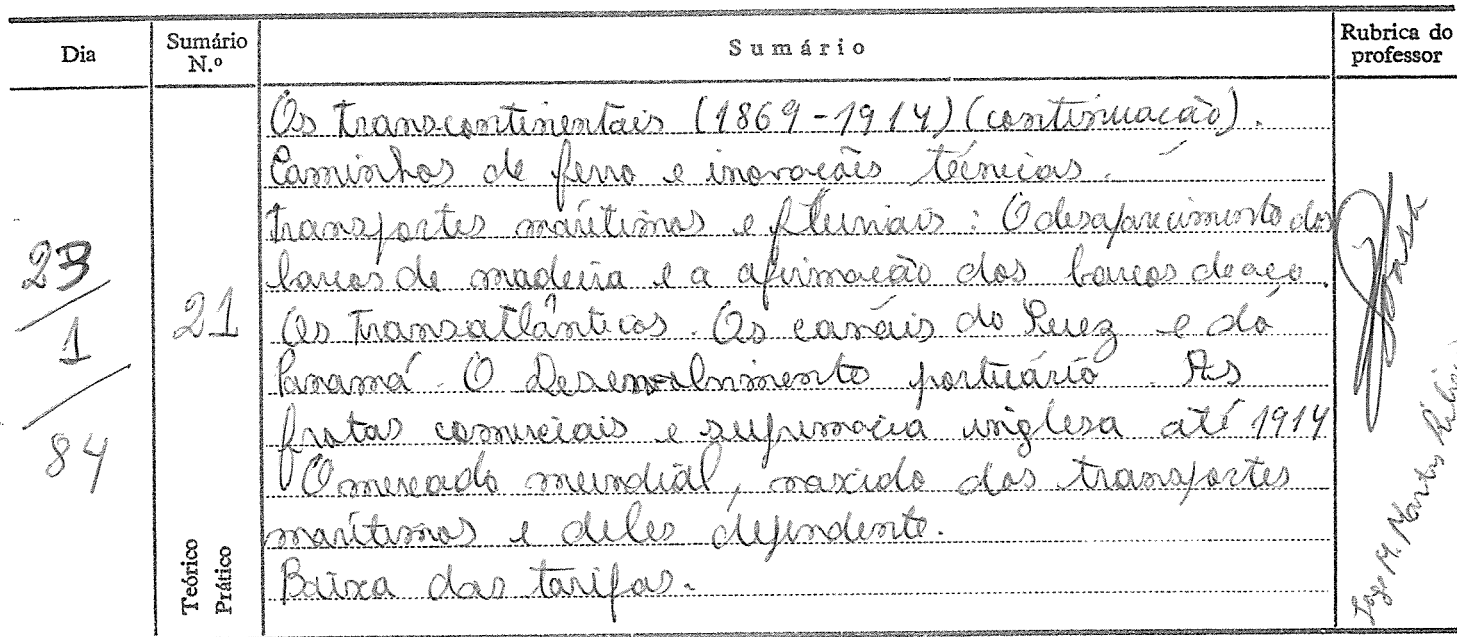 Dia
Sumário N.º
Sumário
Rubrica do professor
23/1/84
21
Os transcontinentais (1869-1914) (continuação).
Caminhos de ferro e inovações técnicas.
transportes marítimos e fluviais: O desaparecimento dos
barcos de madeira e a afirmação dos barcos de aço.
Os transatlânticos. Os canais do Suez e do
Panamá. O Desenvolvimento portuário. As
frotas comerciais e supremacia inglesa até 1914
O mercado mundial, nascido dos transportes
marítimos e deles dependente.
Baixa das tarifas.
Teórico
Prático